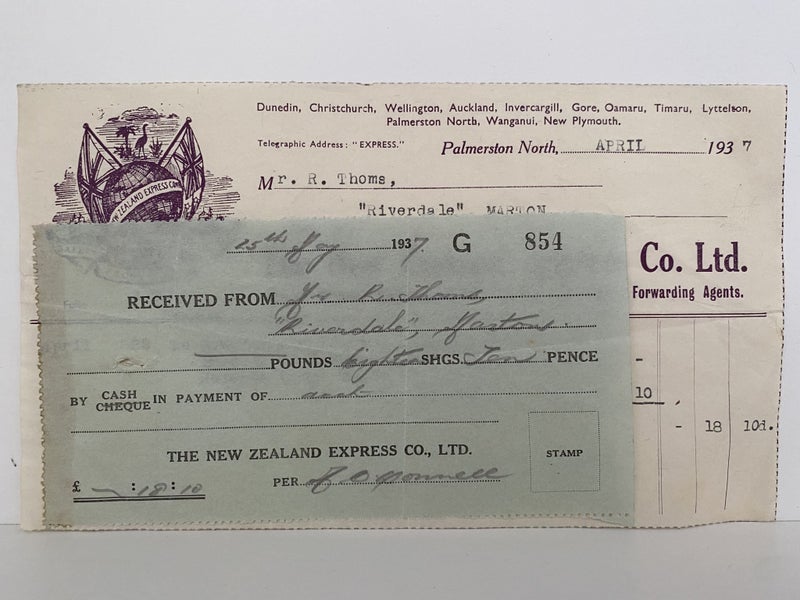 Dunedin, Christchurch, Wellington, Auckland, Invercargill, Gore, Oamaru, Timaru, Lyttelton,
Palmerston North, Wanganui, New Plymouth.
Telegraphic Address: "EXPRESS."
Palmerston North, APRIL 1937
Mr. R. Thoms,
"Riverdale" MARTON
NEW ZEALAND EXPRESS COM
Co. Ltd.
Forwarding Agents.
-
10
- 18 10d.
15th May 1937. G 854
RECEIVED FROM R. Thoms,
"Riverdale", Marton.
POUNDS Eighteen SHGS. Ten PENCE
BY CASH CHEQUE IN PAYMENT OF acct
THE NEW ZEALAND EXPRESS CO., LTD.
STAMP
£ — : 18 : 10
PER O'Donnell